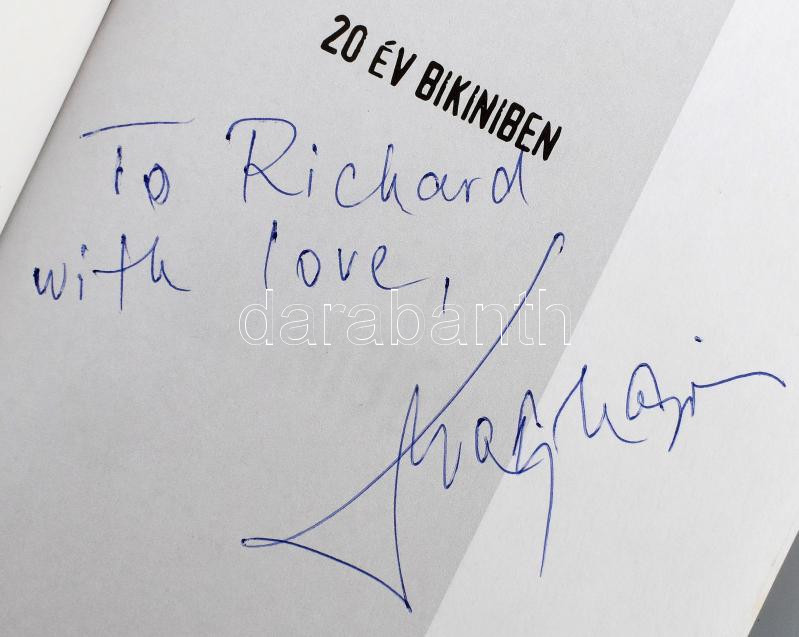 20 ÉV BIKINIBEN
To Richard
with love,
darabanth